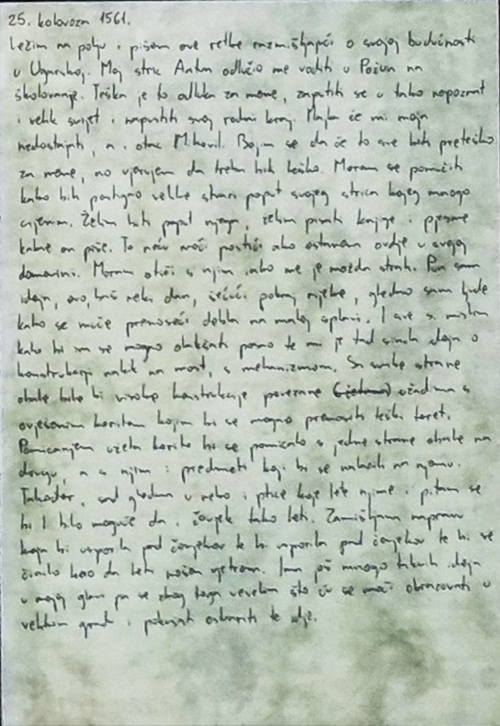 25. kolovoza 1561.
Ležim na polju i pišem ove retke razmišljajući o svojoj budućnosti
u Ugarskoj. Moj stric Antun odlučio me voditi u Požun na
školovanje. Teška je to odluka za mene, zaputiti se u tako nepoznat
i velik svijet i napustiti svoj rodni kraj. Majka će mi moja
nedostajati, a i otac Mihovil. Bojim se da će to sve biti preteško
za mene, no vjerujem da treba biti teško. Moram se pomučiti
kako bih postigao velike stvari poput svojeg strica kojeg mnogo
cijenim. Želim biti poput njega, želim pisati knjige i pjesme
kakve on piše. To neću moći postići ako ostanem ovdje u svojoj
domovini. Moram otići s njim iako me je možda strah. Pun sam
ideja, evo, baš neki dan, šećući pokraj rijeke, gledao sam ljude
kako se muče prenoseći debla na maloj splavi. I sve si mislim
kako bi im se mogao olakšati posao te mi je tad sinula ideja o
konstrukciji nalik na most, s mehanizmom. Sa svake strane
obale bile bi visoke konstrukcije povezane užadima s
ovješenim koritom kojim bi se mogao prenositi teški teret.
Pomicanjem užeta korito bi se pomicalo s jedne strane obale na
drugu, a s njim i predmeti koji bi se nalazili na njemu.
Također, sad gledam u nebo i ptice koje lete njime i pitam se
bi li bilo moguće da i čovjek tako leti. Zamišljam napravu
koja bi usporila pad čovjekov te bi usporila pad čovjekov te bi se
činilo kao da leti nošen vjetrom. Imam još mnogo takvih ideja
u mojoj glavi pa se zbog toga veselim što ću se moći obrazovati u
velikom gradu i pokušati ostvariti te ideje.